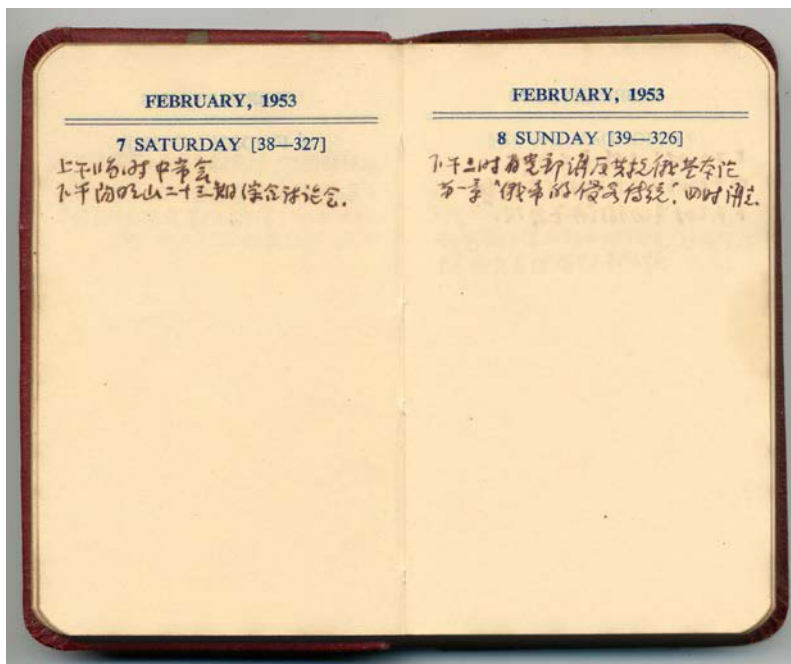 FEBRUARY, 1953
7 SATURDAY [38—327]
上午 时 中常会
下午阳明山二十三期综合讨论会.
FEBRUARY, 1953
8 SUNDAY [39—326]
下午二时 党部讲反共抗俄基本论
第一章“俄帝的侵略传统”. 四时讲完.